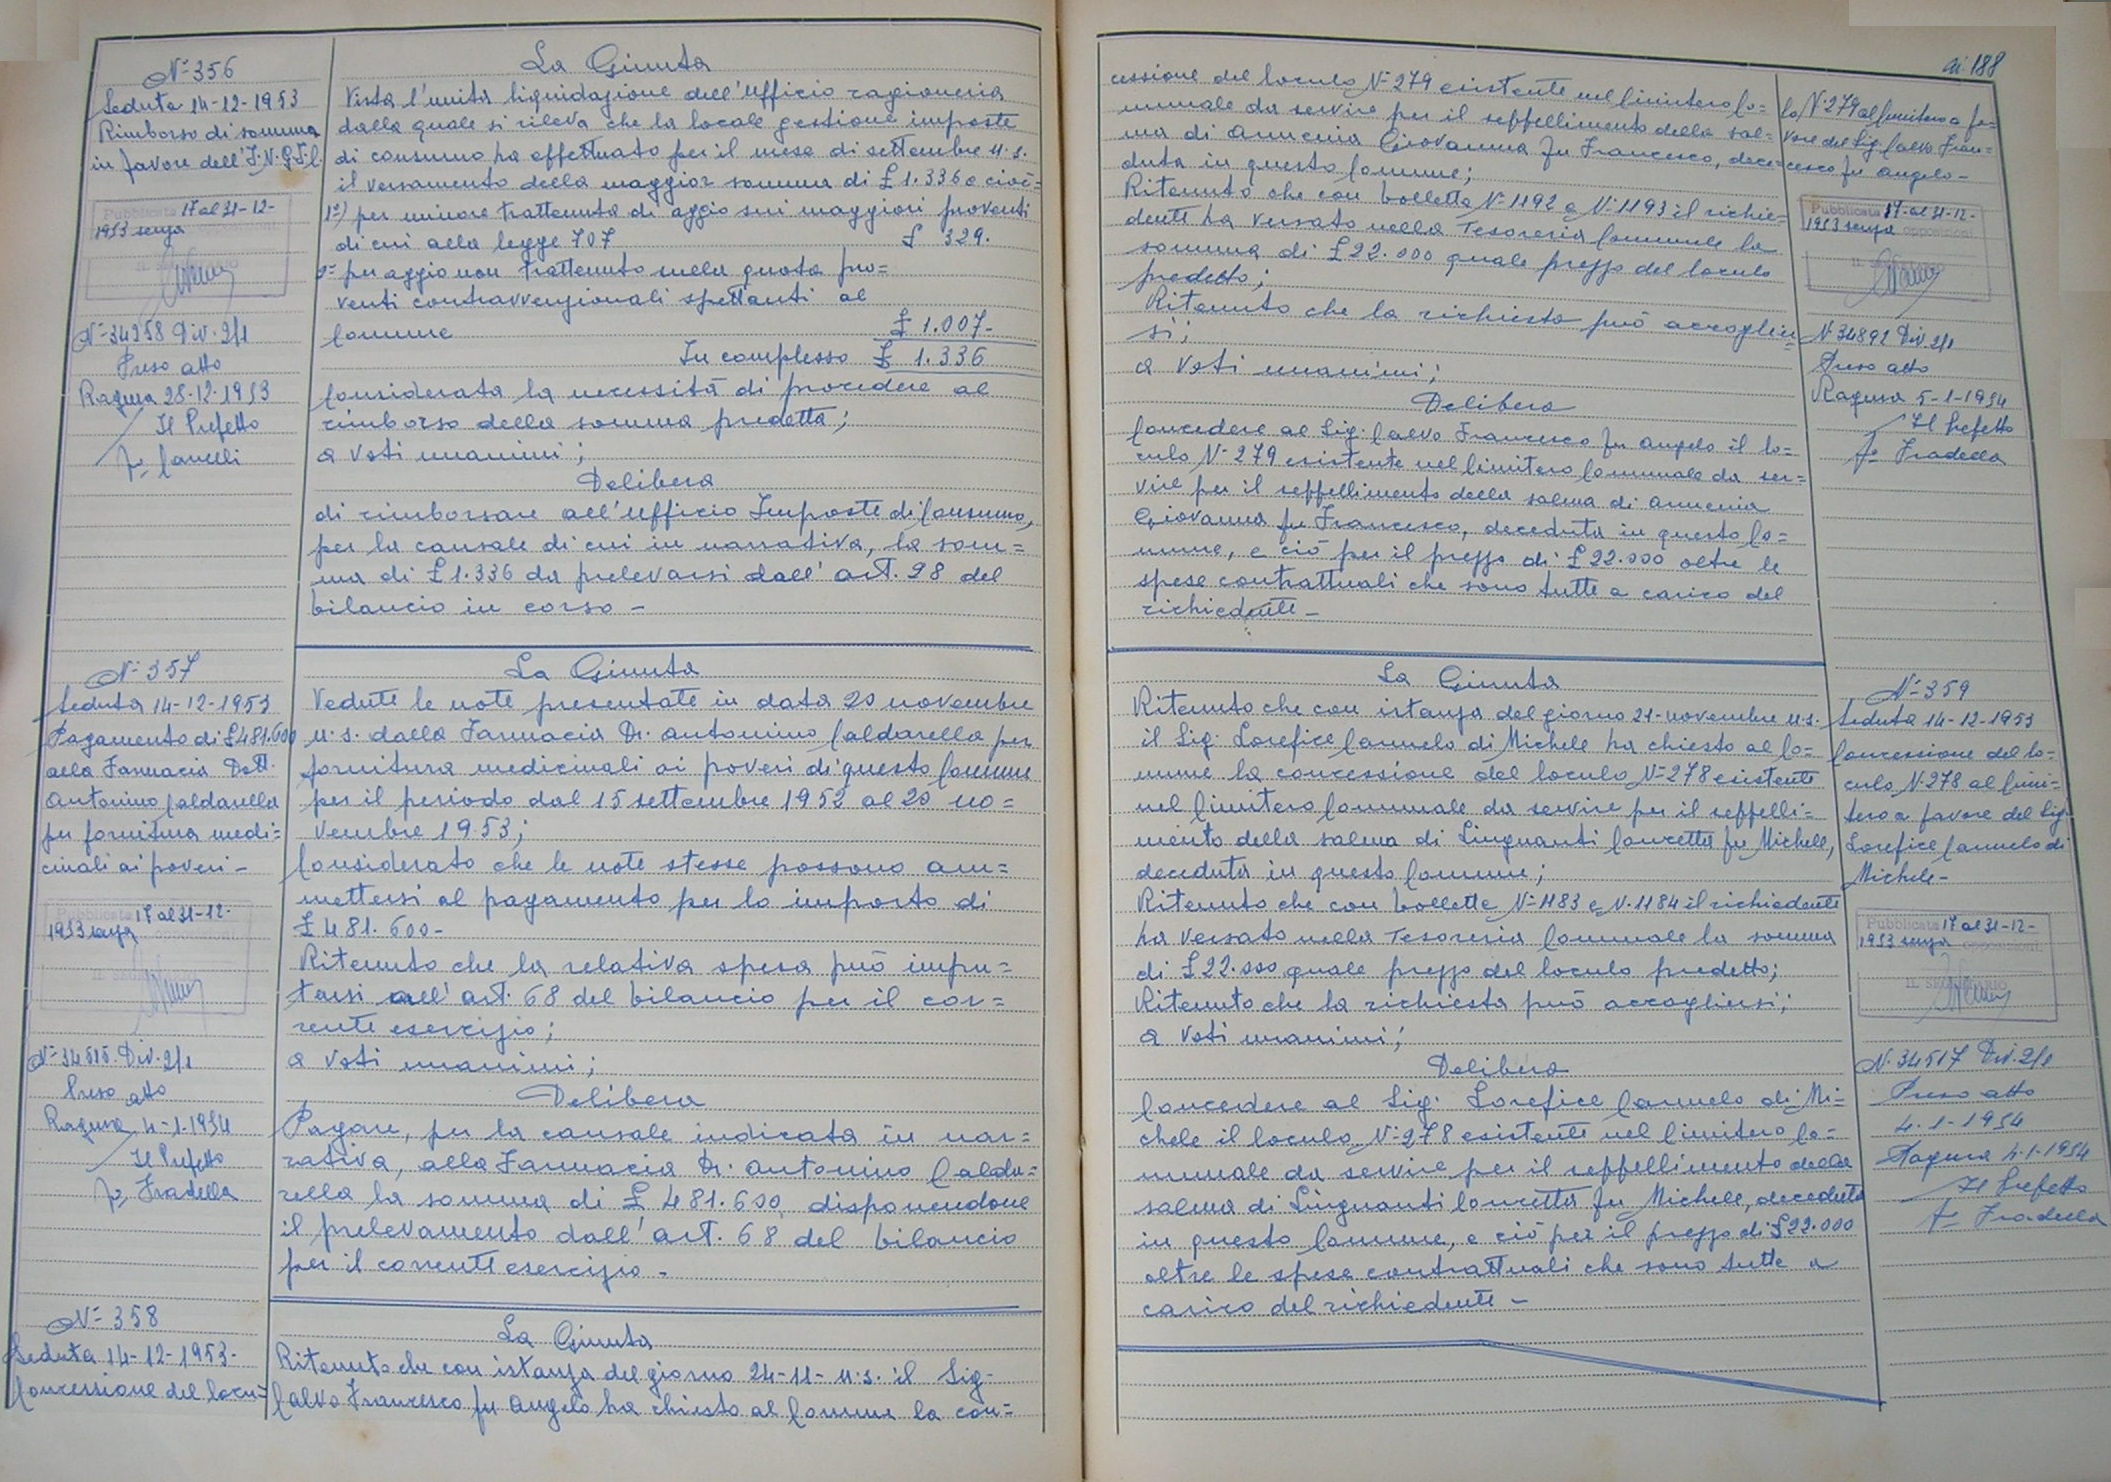 N= 356
Seduta 14-12-1953
Rimborso di somma
in favore dell'I.N.G.I.C.
Pubblicata 17 al 31-12-
1953 senza opposizioni
IL SEGRETARIO
N= 34958 Div. 2/1
Preso atto
Ragusa 28-12-1953
Il Prefetto
La Giunta
Vista l'unita liquidazione dell'ufficio ragioneria
dalla quale si rileva che la locale gestione imposte
di consumo ha effettuato per il mese di settembre u.s.
il versamento della maggior somma di £ 1.336 e cioè=
1°) per minore trattenuta di aggio sui maggiori proventi
di cui alla legge 707 £ 329.
2= per aggio non trattenuto sulla quota pro=
venti contravvenzionali spettanti al
Comune £ 1.007-
In complesso £ 1.336
Considerata la necessità di procedere al
rimborso della somma predetta;
a voti unanimi;
Delibera
di rimborsare all'ufficio Imposte di Consumo,
per la causale di cui in narrativa, la som=
ma di £ 1.336 da prelevarsi dall'art. 98 del
bilancio in corso -
N= 357
Seduta 14-12-1953
Pagamento di £ 481.600
alla Farmacia Dott.
Antonino Caldarella
per fornitura medi=
cinali ai poveri -
Pubblicata 17 al 31-12-
1953 senza opposizioni
IL SEGRETARIO
N= 34515 Div. 2/1
Preso atto
Ragusa 4-1-1954
Il Prefetto
F= Fradella
La Giunta
Vedute le note presentate in data 20 novembre
u.s. dalla Farmacia Dr. Antonino Caldarella per
fornitura medicinali ai poveri di questo Comune
per il periodo dal 15 settembre 1952 al 20 no=
vembre 1953;
Considerato che le note stesse possono am=
mettersi al pagamento per lo importo di
£ 481.600-
Ritenuto che la relativa spesa può impu=
tarsi all'art. 68 del bilancio per il cor=
rente esercizio;
a voti unanimi;
Delibera
Pagare, per la causale indicata in nar=
rativa, alla Farmacia Dr. Antonino Calda=
rella la somma di £ 481.600, disponendone
il prelevamento dall'art. 68 del bilancio
per il corrente esercizio -
N= 358
Seduta 14-12-1953-
Concessione del locu=
La Giunta
Ritenuto che con istanza del giorno 24-11- u.s. il Sig.
Calvo Francesco fu Angelo ha chiesto al Comune la con=
188
cessione del loculo N= 279 esistente nel Cimitero Co=
munale da servire per il seppellimento della sal=
ma di Annenia Giovanna fu Francesco, dece=
duta in questo Comune;
Ritenuto che con bollette N= 1192 e N= 1193 il richie=
dente ha versato nella Tesoreria Comunale la
somma di £ 22.000 quale prezzo del loculo
predetto;
Ritenuto che la richiesta può accoglier=
si;
a voti unanimi;
Delibera
Concedere al Sig. Calvo Francesco fu Angelo il lo=
culo N= 279 esistente nel Cimitero Comunale da ser=
vire per il seppellimento della salma di Annenia
Giovanna fu Francesco, deceduta in questo Co=
mune, e ciò per il prezzo di £ 22.000 oltre le
spese contrattuali che sono tutte a carico del
richiedente -
lo N= 279 al Cimitero a fa=
vore del Sig. Calvo Fran=
cesco fu Angelo -
Pubblicata 17 al 31-12-
1953 senza opposizioni
IL SEGRETARIO
N. 34892 Div. 2/1
Preso atto
Ragusa 5-1-1954
Il Prefetto
F= Fradella
La Giunta
Ritenuto che con istanza del giorno 21-novembre u.s.
il Sig. Lorefice Carmelo di Michele ha chiesto al Co=
mune la concessione del loculo N= 278 esistente
nel Cimitero Comunale da servire per il seppelli=
mento della salma di Linguanti Concetta fu Michele,
deceduta in questo Comune;
Ritenuto che con bollette N= 1183 e N. 1184 il richiedente
ha versato nella Tesoreria Comunale la somma
di £ 22.000 quale prezzo del loculo predetto;
Ritenuto che la richiesta può accogliersi;
a voti unanimi;
Delibera
Concedere al Sig. Lorefice Carmelo di Mi=
chele il loculo N= 278 esistente nel Cimitero Co=
munale da servire per il seppellimento della
salma di Linguanti Concetta fu Michele, deceduta
in questo Comune, e ciò per il prezzo di £ 22.000
oltre le spese contrattuali che sono tutte a
carico del richiedente -
N= 359
Seduta 14-12-1953
Concessione del lo=
culo N. 278 al Cimi=
tero a favore del Sig.
Lorefice Carmelo di
Michele -
Pubblicata 17 al 31-12-
1953 senza opposizioni
IL SEGRETARIO
N. 34517 Div. 2/1
Preso atto
4-1-1954
Ragusa 4-1-1954
Il Prefetto
F= Fradella